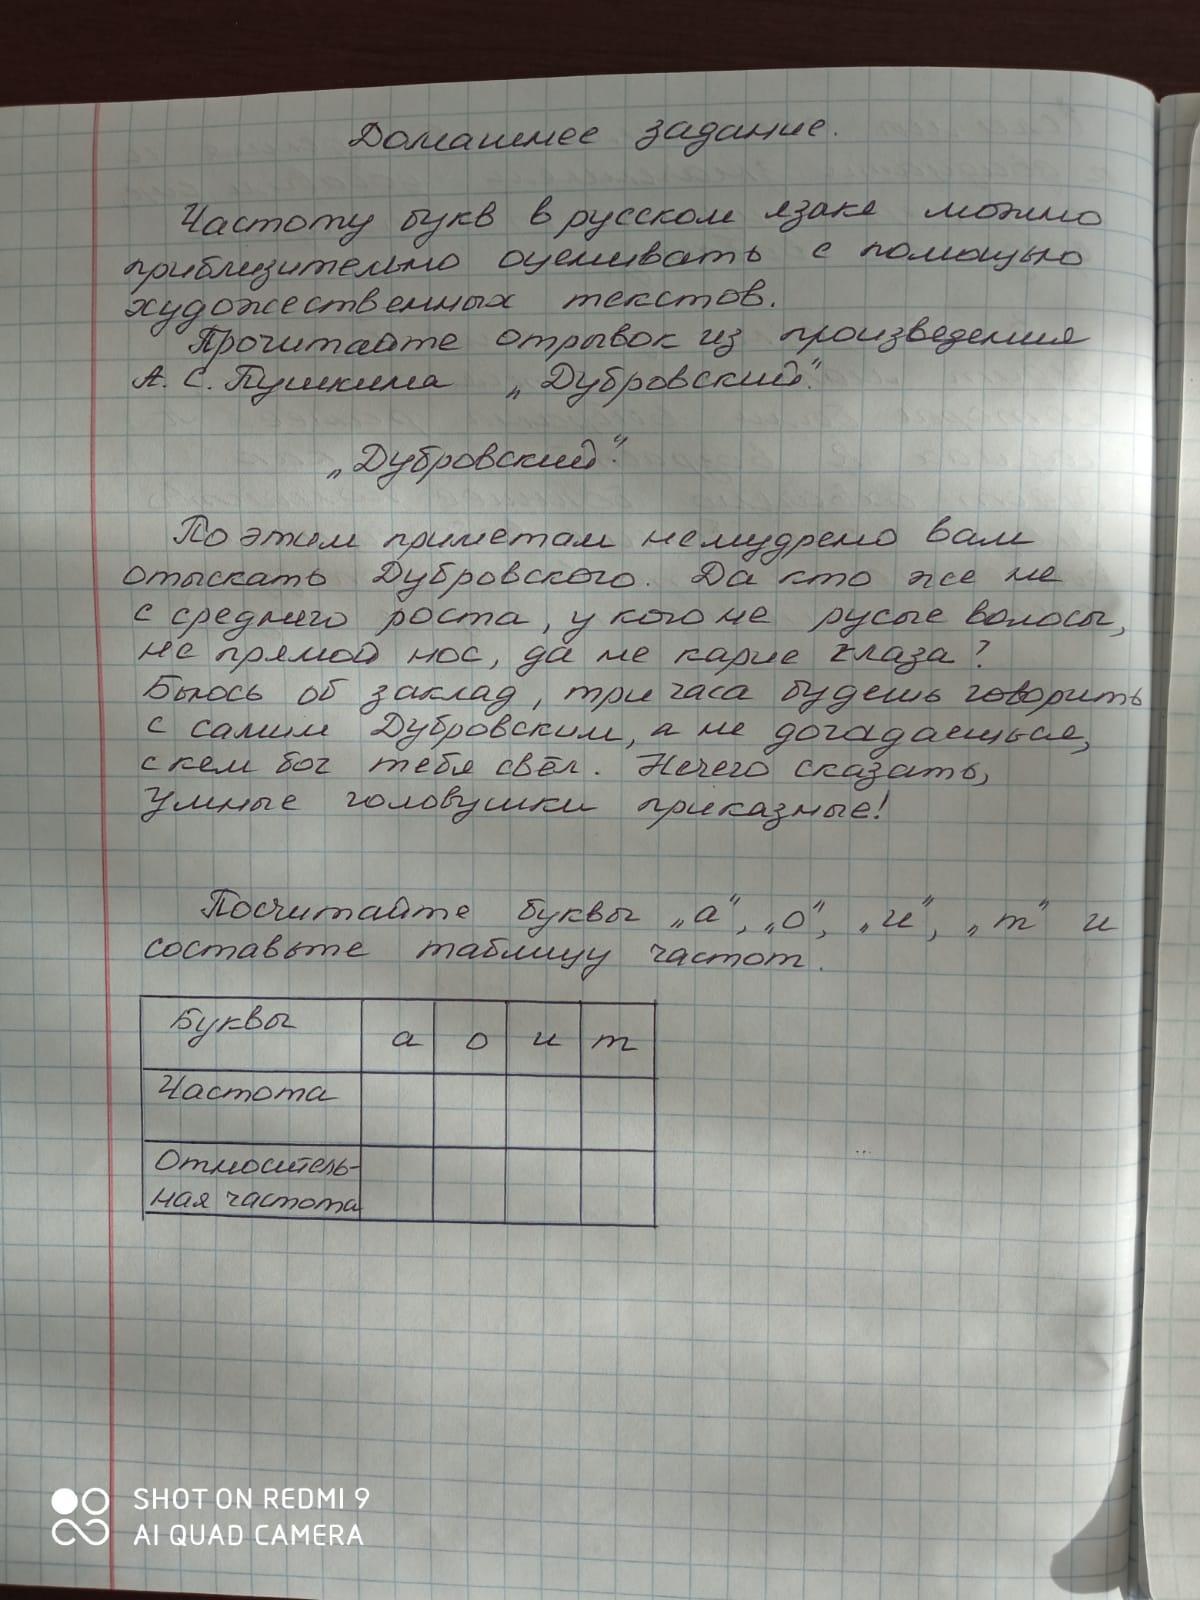 Домашнее задание.
Частоту букв в русском языке можно
приблизительно оценивать с помощью
художественных текстов.
Прочитайте отрывок из произведения
А. С. Пушкина „Дубровский".
„Дубровский".
По этим приметам немудрено вам
отыскать Дубровского. Да кто же не
с среднего роста, у кого не русые волосы,
не прямой нос, да не карие глаза?
Бьюсь об заклад, три часа будешь говорить
с самим Дубровским, а не догадаешься,
с кем бог тебя свёл. Нечего сказать,
Умные головушки приказные!
Посчитайте буквы „а", „о", „и", „т" и
составьте таблицу частот.
Буквы а о и т
Частота
Относитель-
ная частота
SHOT ON REDMI 9
AI QUAD CAMERA